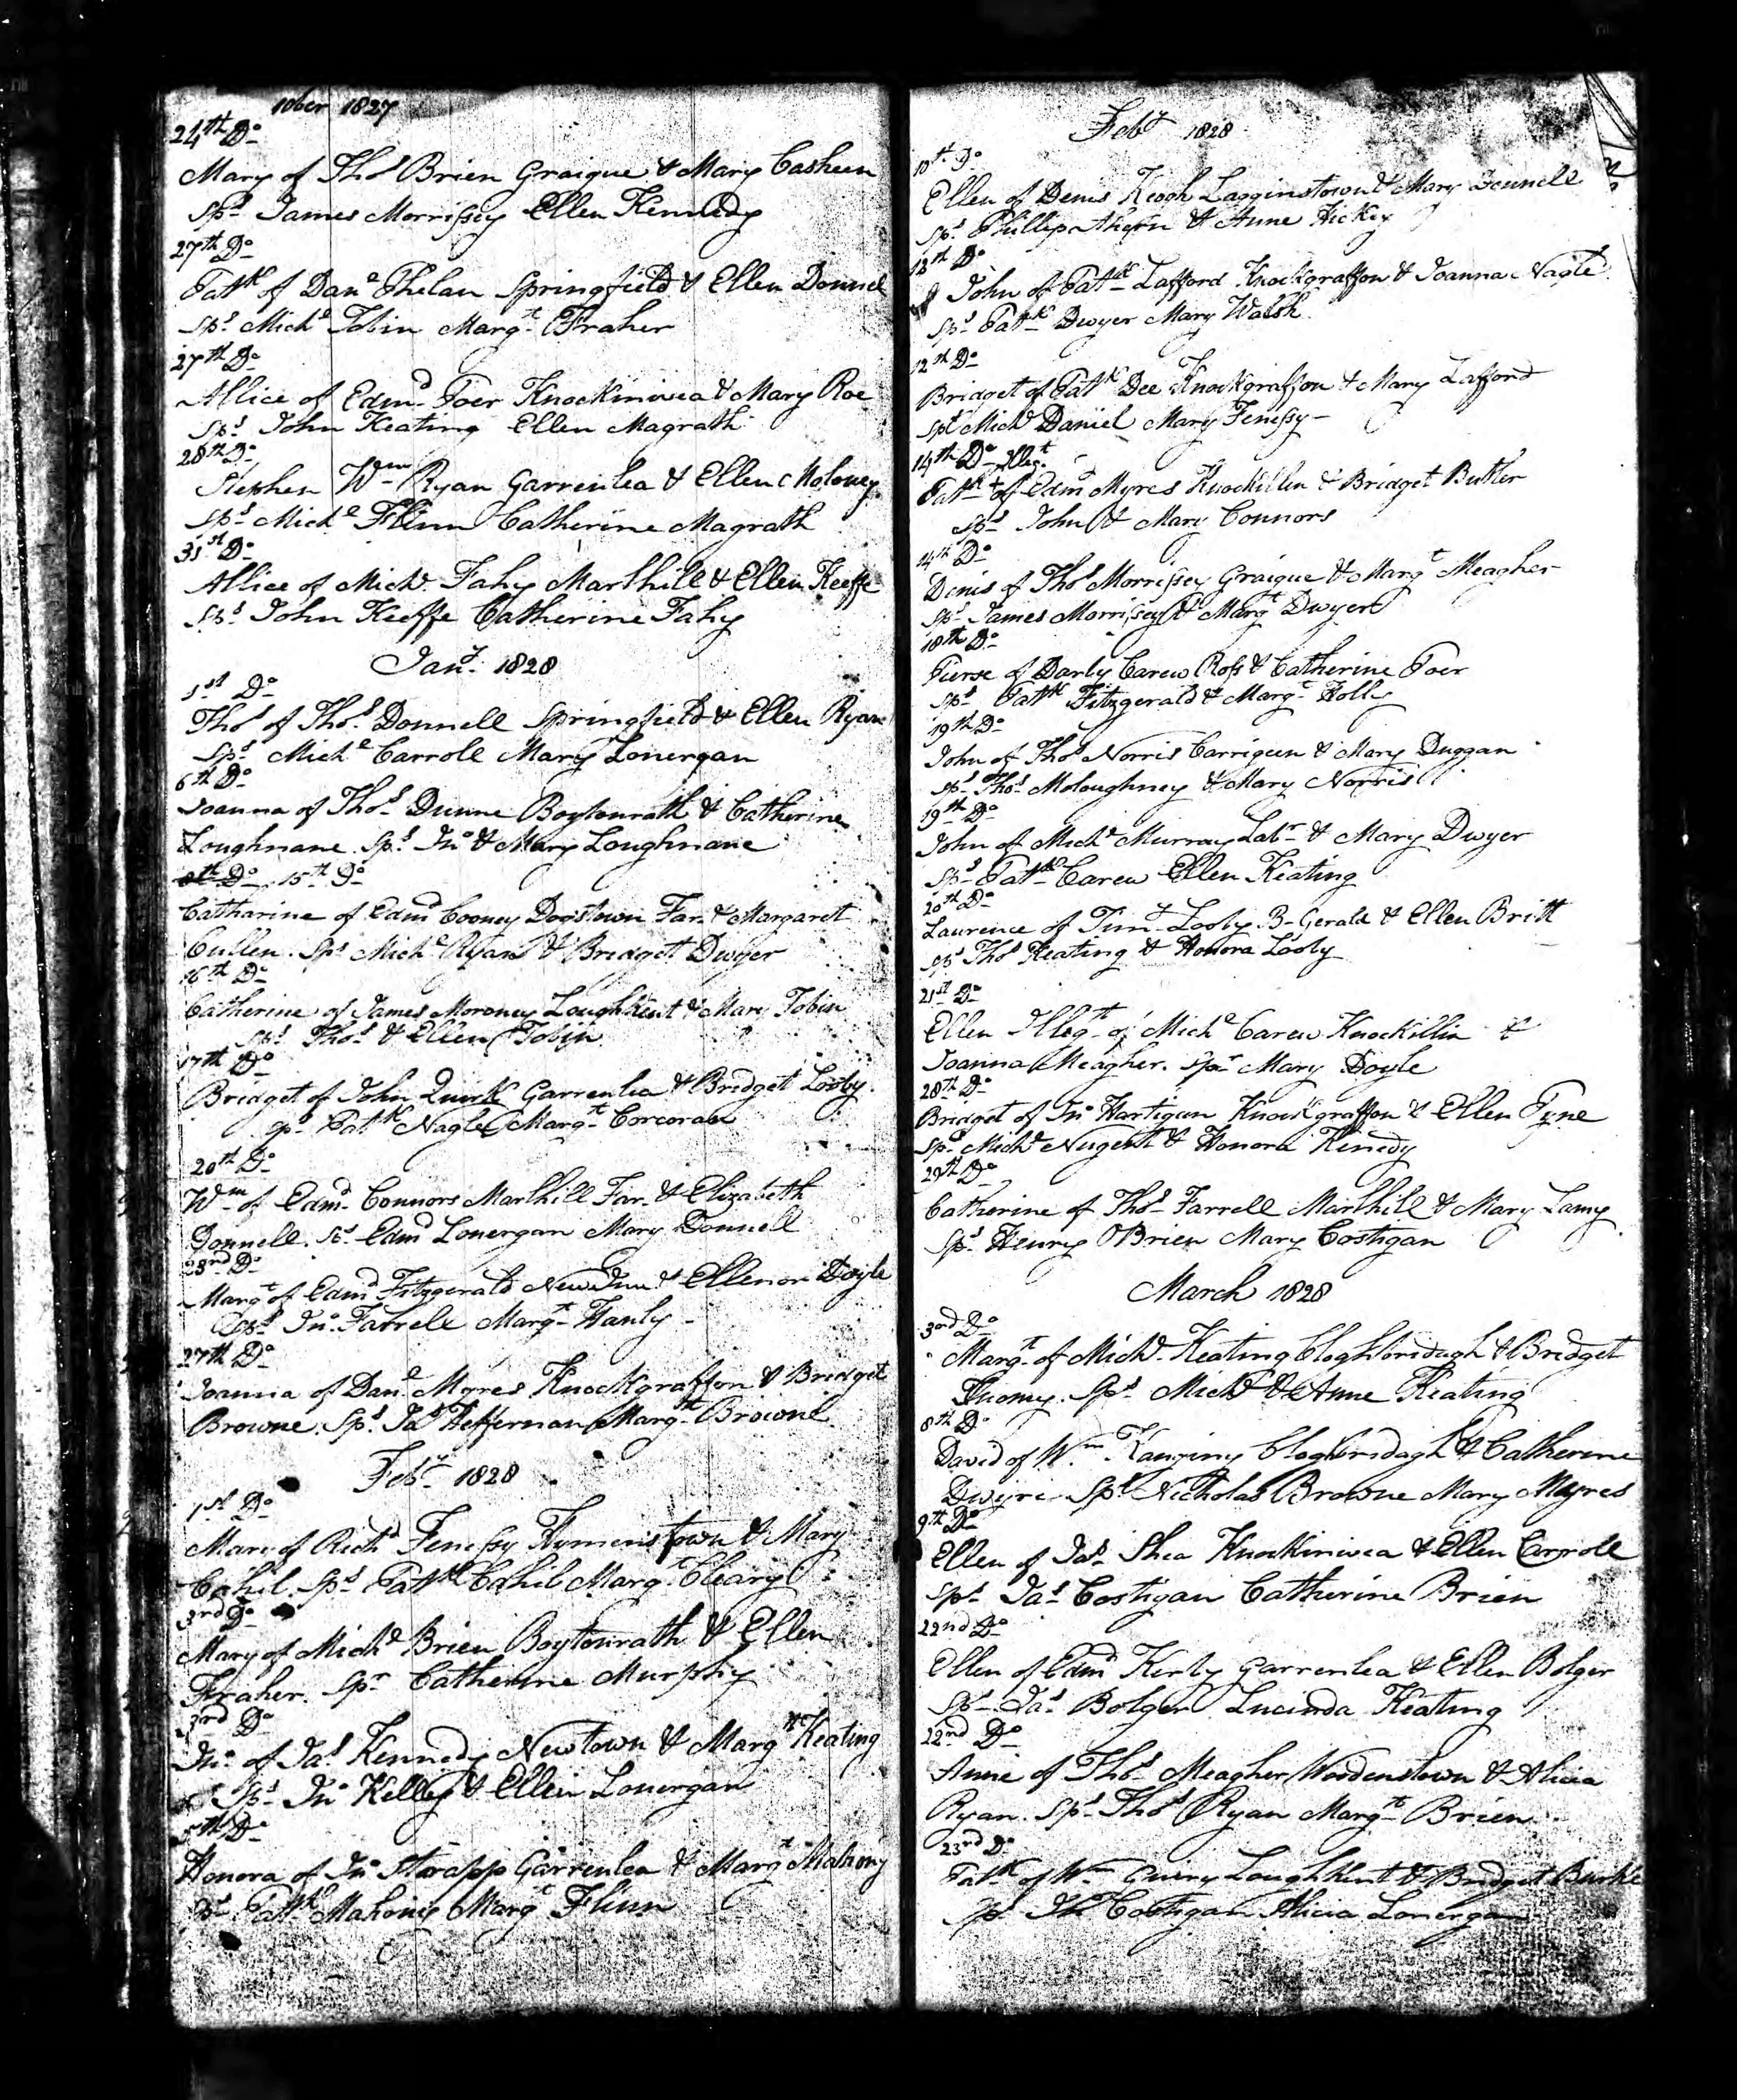 10ber 1827
24th Do
Mary of Thos Brien Graigue & Mary Casheen
Sps James Morrissey Ellen Kennedy
27th Do
Patk of Danl Phelan Springfield & Ellen Donnel
Sps Michl Tobin Margt Fraher
27th Do
Allice of Edmd Poer Knockinivea & Mary Roe
Sps John Keating Ellen Magrath
28th Do
Stephen Wm Ryan Garrenlea & Ellen Moloney
Sps Michl Flinn Catherine Magrath
31st Do
Allice of Michl Fahy Marlhill & Ellen Keeffe
Sps John Keeffe Catherine Fahy
Jany 1828
1st Do
Thos of Thos Donnell Springfield & Ellen Ryan
Sps Michl Carroll Mary Lonergan
6th Do
Joanna of Thos Dunne Boytonrath & Catherine
Loughnane. Sps Jno & Mary Loughnane
8th Do 15th Do
Catharine of Edmd Cooney Dogstown Far. & Margaret
Cullen. Sps Michl Ryan & Bridget Dwyer
16th Do
Catherine of James Moroney Loughkent & Mary Tobin
Sps Thos & Ellen Tobin
17th Do
Bridget of John Quirk Garrenlea & Bridget Looby.
Sps Patk Nagle Margt Corcoran
20th Do
Wm of Edmd Connors Marlhill Far. & Elizabeth
Donnell. Ss Edmd Lonergan Mary Donnell
23rd Do
Margt of Edmd Fitzgerald New Inn & Ellenor Doyle
Sps Jno Farrell Margt Hanly
27th Do
Joanna of Danl Myres Knockgraffon & Bridget
Browne. Sps Jas Heffernan Margt Browne
Feby 1828
1st Do
Mary of Richd Fenessy Hymenstown & Mary
Cahil. Sps Patk Cahil Margt Cleary
3rd Do
Mary of Michl Brien Boytonrath & Ellen
Fraher. Spr Catherine Murphy
3rd Do
Jno of Jas Kennedy Newtown & Margt Keating
Sps Jno Kelley & Ellen Lonergan
5th Do
Honora of Jno Strapp Garrenlea & Margt Mahony
Sps Patk Mahony Margt Flinn
Feby 1828
10th Do
Ellen of Denis Keogh Lagginstown & Mary Donnell
Sps Phillip Ahern & Anne Hickey
12th Do
John of Patk Lafford Knockgraffon & Joanna Nagle
Sps Patk Dwyer Mary Walsh
12th Do
Bridget of Patk Dee Knockgraffon & Mary Lafford
Sps Michl Daniel Mary Fenessy
14th Do Illegt
Patk + of Edmd Myres Knockillin & Bridget Butler
Sps John & Mary Connors
14th Do
Denis of Thos Morrissey Graigue & Margt Meagher
Sps James Morrissey & Margt Dwyer
18th Do
Pierse of Darby Carew Ross & Catherine Poer
Sps Patk Fitzgerald & Margt Holly
19th Do
John of Thos Norris Carrigeen & Mary Duggan
Sps Thos Moloughney & Mary Norris
19th Do
John of Michl Murray Labr & Mary Dwyer
Sps Patk Carew Ellen Keating
20th Do
Laurence of Timy Looby B-Gerald & Ellen Britt
Sps Thos Keating & Honora Looby
21st Do
Ellen Illegt of Michl Carew Knockillin &
Joanna Meagher. Spr Mary Doyle
28th Do
Bridget of Jno Hartigan Knockgraffon & Ellen Tyne
Sps Michl Nugent & Honora Kenedy
29th Do
Catherine of Thos Farrell Marlhill & Mary Lamy
Sps Henry OBrien Mary Costigan
March 1828
3rd Do
Margt of Michl Keating Cloghbridagh & Bridget
Twomy. Sps Michl & Anne Keating
8th Do
David of Wm Cloghbridagh & Catherine
Dwyre Sps Nicholas Browne Mary Myres
9th Do
Ellen of Jas Shea Knockinivea & Ellen Carroll
Sps Jas Costigan Catherine Brien
22nd Do
Ellen of Edmd Kerby Garrenlea & Ellen Bolger
Sps Jas Bolger Lucinda Keating
22nd Do
Anne of Thos Meagher Woodenstown & Alicia
Ryan. Sps Thos Ryan Margt Brien
23rd Do
Patk of Wm Loughkent & Bridget Burke
Sps Costigan Alicia Lonergan